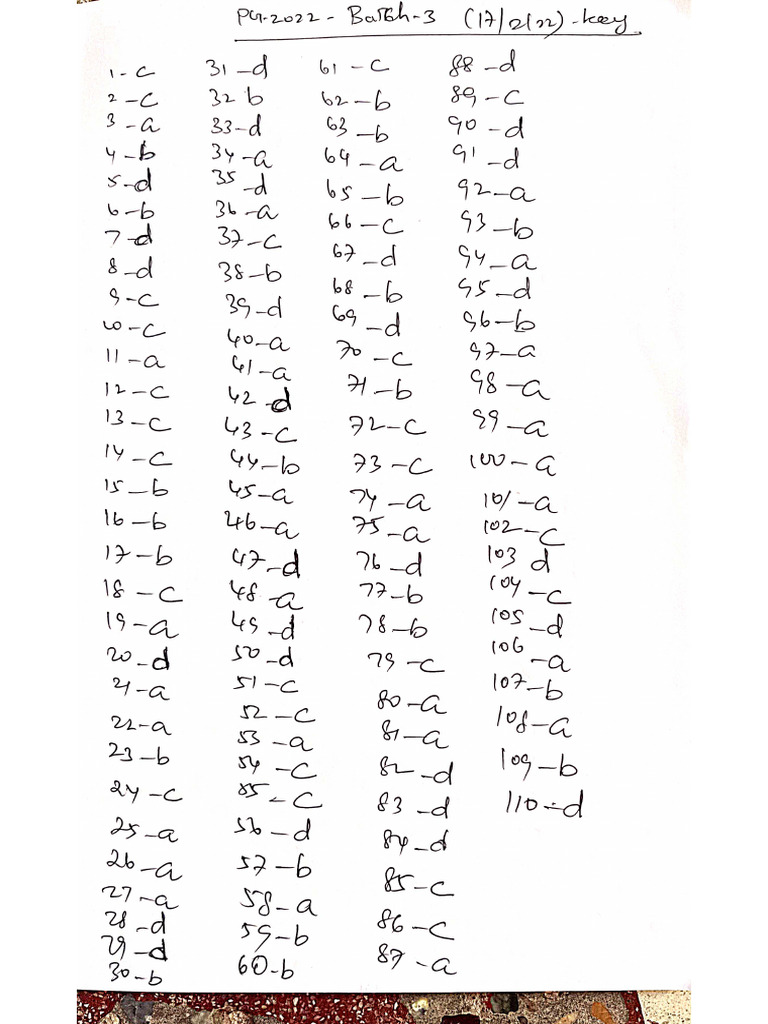 PG-2022 - Batch-3 (17/2/22) - key
1-c
2-c
3-a
4-b
5-d
6-b
7-d
8-d
9-c
10-c
11-a
12-c
13-c
14-c
15-b
16-b
17-b
18-c
19-a
20-d
21-a
22-a
23-b
24-c
25-a
26-a
27-a
28-d
29-d
30-b
31-d
32 b
33-d
34-a
35-d
36-a
37-c
38-b
39-d
40-a
41-a
42-d
43-c
44-b
45-a
46-a
47-d
48-a
49-d
50-d
51-c
52-c
53-a
54-c
55-c
56-d
57-b
58-a
59-b
60-b
61-c
62-b
63-b
64-a
65-b
66-c
67-d
68-b
69-d
70-c
71-b
72-c
73-c
74-a
75-a
76-d
77-b
78-b
79-c
80-a
81-a
82-d
83-d
84-d
85-c
86-c
87-a
88-d
89-c
90-d
91-d
92-a
93-b
94-a
95-d
96-b
97-a
98-a
99-a
100-a
101-a
102-c
103 d
104-c
105-d
106-a
107-b
108-a
109-b
110-d